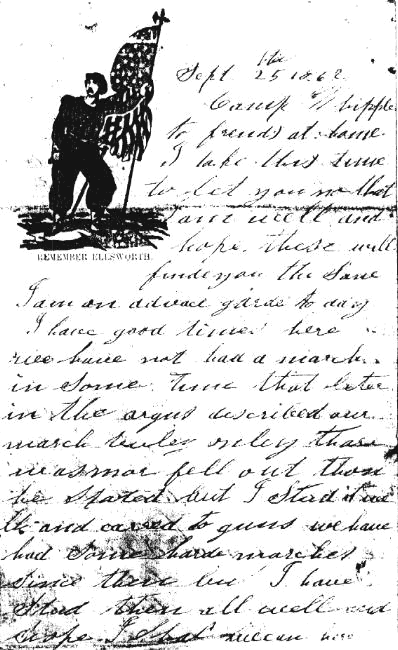 Sept the 25 1862
Camp Whipple
to frends at home
I take this time
to let you no that
I am well and
hope these will
finde you the Same
REMEMBER ELLSWORTH.
I am on advace garde to day
I have good times here
wee have not had a march
in Some time that leter
in the argus described our
march truley onley thare
was mor fell out than
he Stated but I Stud it
and carred to guns we have
had Some harde marches
Since then but I have
Stud them all well and
hope I Shal